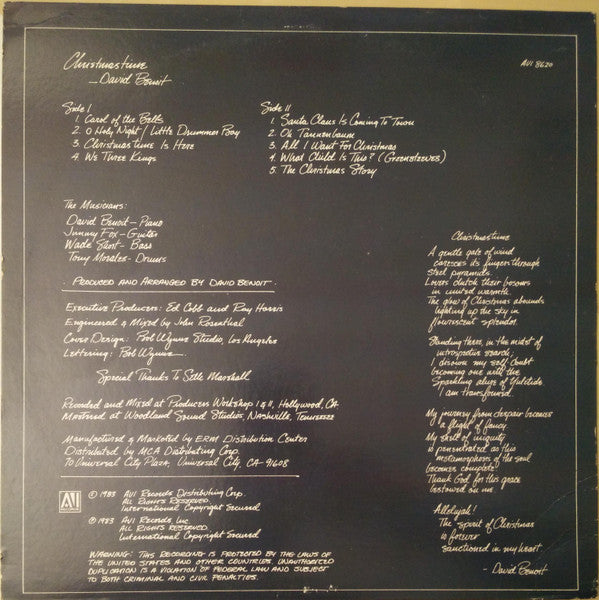 Christmastime
- David Benoit
AVI 8620
Side I
1. Carol of the Bells
2. O Holy Night / Little Drummer Boy
3. Christmastime Is Here
4. We Three Kings
Side II
1. Santa Claus Is Coming To Town
2. Oh Tannenbaum
3. All I Want For Christmas
4. What Child Is This? (Greensleeves)
5. The Christmas Story
The Musicians:
David Benoit - Piano
Jimmy Fox - Guitar
Wade Short - Bass
Tony Morales - Drums
Produced and Arranged by David Benoit
Executive Producers: Ed Cobb and Ray Harris
Engineered & Mixed by John Rosenthal
Cover Design: Bob Wynne Studio, Los Angeles
Lettering: Bob Wynne
Special Thanks To Seth Marshall
Recorded and Mixed at Producers Workshop I & II, Hollywood, CA
Mastered at Woodland Sound Studios, Nashville, Tennessee
Manufactured & Marketed by ERM Distribution Center
Distributed by MCA Distributing Corp.
70 Universal City Plaza, Universal City, CA 91608
AVI
© 1983 AVI Records Distributing Corp.
All Rights Reserved.
International Copyright Secured
℗ 1983 AVI Records, Inc.
All Rights Reserved.
International Copyright Secured
WARNING: This Recording is Protected by the Laws of
the United States and other Countries. Unauthorized
Duplication is a violation of Federal Law and subject
to both criminal and civil penalties.
Christmastime
A gentle gale of wind
caresses its fingers through
steel pyramids.
Lovers clutch their bosoms
in united warmth
The glow of Christmas abounds
lighting up the sky in
flourescent splendor.
Standing there, in the midst of
introspective search,
I disown my self doubt
becoming one with the
Sparkling alleys of Yuletide
I am transformed.
My journey from despair becomes
a flight of fancy
My shell of iniquity
is penetrated as this
metamorphosis of the soul
becomes complete.
Thank God for this grace
bestowed on me.
Allelujah!
The spirit of Christmas
is forever
sanctioned in my heart.
- David Benoit